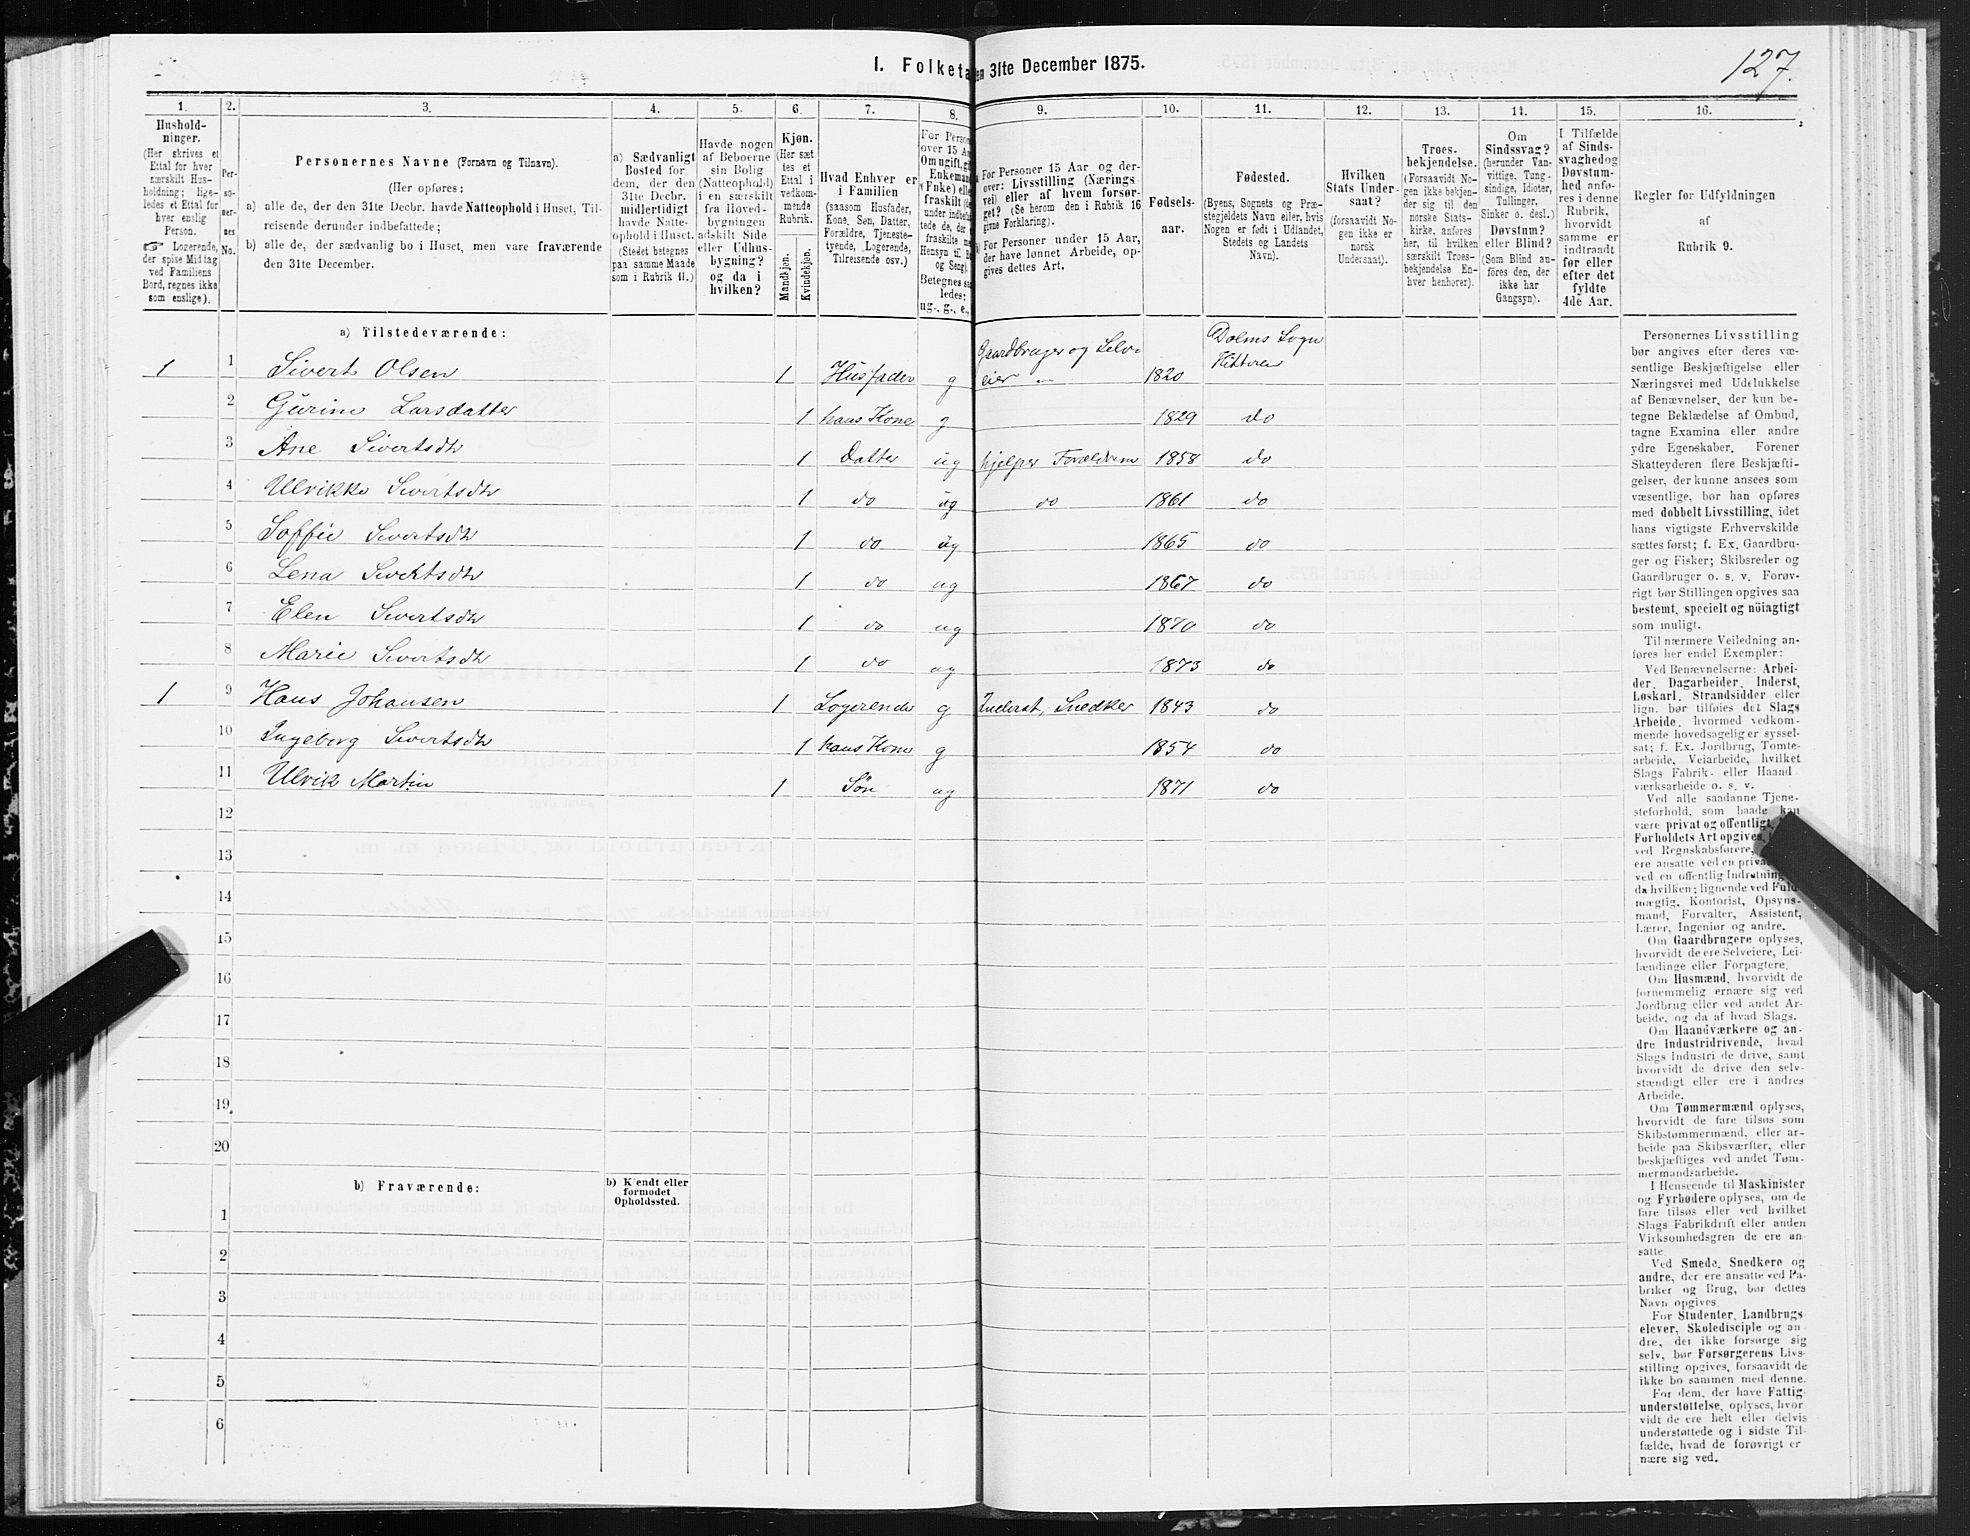 127.
I. Folketa
en 31te December 1875.
1.
2.
3.
4.
5.
6.
7.
8.
9.
10.
11.
12.
13.
14.
15.
16.
Hushold-
ninger.
(Her skrives et
Ettal for hver
særskilt Hus-
holdning; lige-
ledes et Ettal for
hver enslig
Person.
☞ Logerende,
der spise Middag
ved Familiens
Bord, regnes ikke
som enslige).
Per-
so-
ner-
nes
No.
Personernes Navne (Fornavn og Tilnavn).
(Her opføres:
a) alle de, der den 31te Decbr. havde Natteophold i Huset, Til-
reisende derunder indbefattede;
b) alle de, der sædvanlig bo i Huset, men vare fraværende
den 31te December.
a) Sædvanligt
Bosted for
dem, der den
31te Decbr.
midlertidigt
havde Natte-
ophold i Huset.
(Stedet betegnes
paa samme Maade
som i Rubrik 11.)
Havde nogen
af Beboerne
sin Bolig
(Natteophold)
i en særskilt
fra Hoved-
bygningen
adskilt Side
eller Udhus-
bygning?
og da i
hvilken?
Kjøn.
(Her sæt
tes et
Ettal i
vedkom-
mende
Rubrik.
Mandkjøn.
Kvindekjøn.
Hvad Enhver er
i Familien
(saasom Husfader,
Kone, Søn, Datter,
Forældre, Tjeneste-
tyende, Logerende,
Tilreisende osv.)
For Person
over 15 A
Om ugift, gi
Enkeman
(Enke) elle
fraskilt
under indbe
tede de, der
fraskilte
Hensyn til
og Seng).
Betegnes
ledes:
ug., g., e.,
For Personer 15 Aar og der-
over: Livsstilling (Nærings
vei) eller af hvem forsør-
get? (Se herom den i Rubrik 16
givne Forklaring).
For Personer under 15 Aar,
der have lønnet Arbeide, op-
gives dettes Art.
Fødsels-
aar.
Fødested.
(Byens, Sognets og Præ-
stegjeldets Navn eller, hvis
Nogen er født i Udlandet,
Stedets og Landets
Navn).
Hvilken
Stats Under-
saat?
(forsaavidt No-
gen ikke er
norsk
Undersaat).
Troes-
bekjendelse.
(Forsaavidt No-
gen ikke bekjen-
der sig til den
norske Stats-
kirke, anføres
her, til hvilken
særskilt Troes-
bekjendelse En-
hver henhører).
Om
Sindssvag?
(herunder Van-
vittige, Tung-
sindige, Idioter,
Tullinger,
Sinker o. desl.)
Døvstum?
eller Blind?
(Som Blind an-
føres den, der
ikke har
Gangsyn).
I Tilfælde
af Sinds-
svaghed og
Døvstum-
hed anfø-
res i denne
Rubrik,
hvorvidt
samme er
indtraadt
før eller
efter det
fyldte
4de Aar.
Regler for Udfyldningen
af
Rubrik 9.
a) Tilstedeværende:
1 1 Sivert Olsen 1 Husfader g Gaardbruger og Selv-
eier 1820 Dolms Sogn
Hitteren
2 Gurine Larsdatter 1 hans Kone g 1829 do
3 Ane Sivertsdtr 1 Datter ug hjelper Forældrene 1858 do
4 Ulrikke Sivertsdtr 1 do ug do 1861 do
5 Soffie Sivertsdtr 1 do ug 1865 do
6 Lena Sivertsdtr 1 do ug 1867 do
7 Elen Sivertsdtr 1 do ug 1870 do
8 Marie Sivertsdtr 1 do ug 1873 do
1 9 Hans Johansen 1 Logerende g Inderst, Snedker 1843 do
10 Ingeborg Sivertsdtr 1 hans Kone g 1854 do
11 Ulrik Martin 1 Søn ug 1871 do
12
13
14
15
16
17
18
19
20
b) Fraværende:
b) Kjendt eller
formodet
Opholdssted.
1
2
3
4
5
6
Personernes Livsstilling
bør angives efter deres væ-
sentlige Beskjæftigelse eller
Næringsvei med Udelukkelse
af Benævnelser, der kun be-
tegne Beklædelse af Ombud,
tagne Examina eller andre
ydre Egenskaber. Forener
Skatteyderen flere Beskjæfti-
gelser, der kunne ansees som
væsentlige, bør han opføres
med dobbelt Livsstilling, idet
hans vigtigste Erhvervskilde
sættes først; f. Ex. Gaardbru-
ger og Fisker; Skibsreder og
Gaardbruger o. s. v. Forøv-
rigt bør Stillingen opgives saa
bestemt, specielt og nöiagtigt
som muligt.
Til nærmere Veiledning an-
føres her endel Exempler:
Ved Benævnelserne: Arbei-
der, Dagarbeider, Inderst,
Løskarl, Strandsidder eller
lign. bør tilføies det Slags
Arbeide, hvormed vedkom-
mende hovedsagelig er syssel-
sat; f. Ex. Jordbrug, Tomte-
arbeide, Veiarbeide, hvilket
Slags Fabrik- eller Haand
værksarbeide o. s. v.
Ved alle saadanne Tjene-
steforhold, som baade kan
være privat og offentligt,
Forholdets Art opgives,
ved Regnskabsførere,
ere ansatte ved en priva
ved en offentlig Indretning
da hvilken; lignende ved Fuld
mægtig, Kontorist, Opsyns-
mand, Forvalter, Assistent,
Lærer, Ingeniør og andre.
Om Gaardbrugere oplyses,
hvorvidt de ere Selveiere, Lei-
lændinge eller Forpagtere.
Om Husmænd, hvorvidt de
fornemmelig ernære sig ved
Jordbrug eller ved andet Ar-
beide, og da af hvad Slags.
Om Haandværkere og an-
dre Industridrivende, hvad
Slags Industri de drive, samt
hvorvidt de drive den selv-
stændigt eller ere i andres
Arbeide.
Om Tømmermænd oplyses,
hvorvidt de fare tilsøs som
Skibstømmermænd, eller ar-
beide paa Skibsværfter, eller
beskjæftiges ved andet Tøm-
mermandsarbeide.
I Henseende til Maskinister
og Fyrbødere oplyses, om de
fare tilsøs eller ved hvilket
Slags Fabrikdrift eller anden
Virksomhedsgren de ere an-
satte.
Ved Smede, Snedkere og
andre, der ere ansatte ved Fa-
briker og Brug, bør dettes
Navn opgives.
For Studenter, Landbrugs
elever, Skoledisciple og an-
dre, der ikke forsørge sig
selv, bør Forsørgerens Livs-
stilling opgives, forsaavidt de
ikke bo sammen med denne.
For dem, der have Fattig-
understøttelse, oplyses, hvor
vidt de ere helt eller delvis
understøttede og i sidste Til-
fælde, hvad de forøvrigt er
nære sig ved.